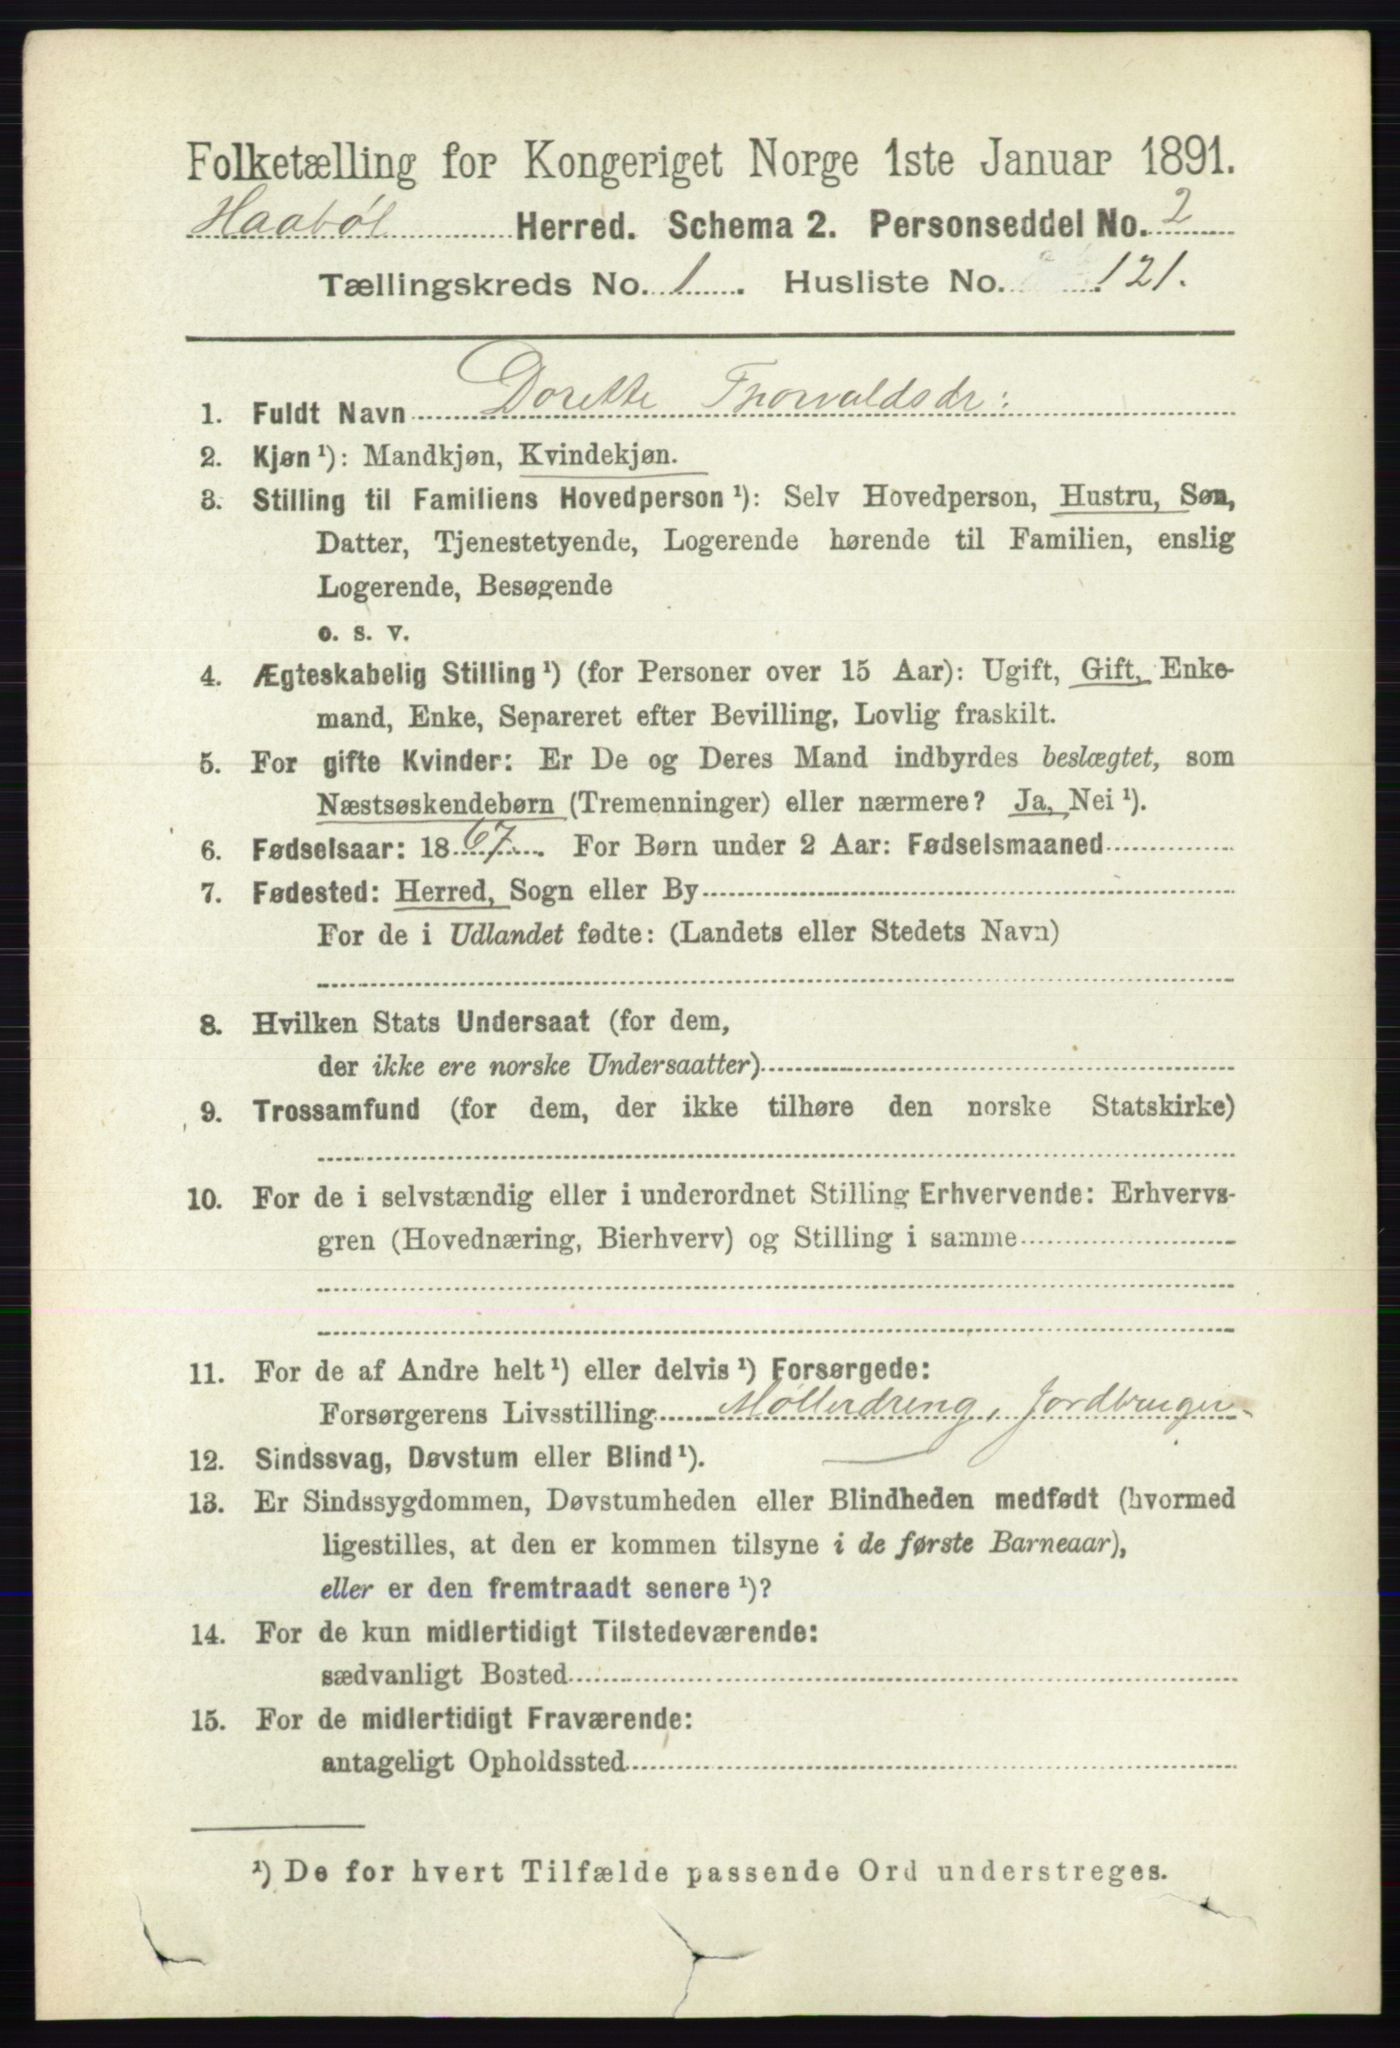 Folketælling for Kongeriget Norge 1ste Januar 1891.
Haabøl Herred. Schema 2. Personseddel No. 2
Tællingskreds No. 1. Husliste No. 121.
1. Fuldt Navn Dorette Thorvaldsdr:
2. Kjøn ¹): Mandkjøn, Kvindekjøn.
3. Stilling til Familiens Hovedperson ¹): Selv Hovedperson, Hustru, Søn,
Datter, Tjenestetyende, Logerende hørende til Familien, enslig
Logerende, Besøgende
o. s. v.
4. Ægteskabelig Stilling ¹) (for Personer over 15 Aar): Ugift, Gift, Enke-
mand, Enke, Separeret efter Bevilling, Lovlig fraskilt.
5. For gifte Kvinder: Er De og Deres Mand indbyrdes beslægtet, som
Næstsøskendebørn (Tremenninger) eller nærmere? Ja, Nei ¹).
6. Fødselsaar: 1867. For Børn under 2 Aar: Fødselsmaaned
7. Fødested: Herred, Sogn eller By
For de i Udlandet fødte: (Landets eller Stedets Navn)
8. Hvilken Stats Undersaat (for dem,
der ikke ere norske Undersaatter)
9. Trossamfund (for dem, der ikke tilhøre den norske Statskirke)
10. For de i selvstændig eller i underordnet Stilling Erhvervende: Erhvervs-
gren (Hovednæring, Bierhverv) og Stilling i samme
11. For de af Andre helt ¹) eller delvis ¹) Forsørgede:
Forsørgerens Livsstilling Møllerdreng, Jordbruger
12. Sindssvag, Døvstum eller Blind ¹).
13. Er Sindssygdommen, Døvstumheden eller Blindheden medfødt (hvormed
ligestilles, at den er kommen tilsyne i de første Barneaar),
eller er den fremtraadt senere ¹)?
14. For de kun midlertidigt Tilstedeværende:
sædvanligt Bosted
15. For de midlertidigt Fraværende:
antageligt Opholdssted
¹) De for hvert Tilfælde passende Ord understreges.